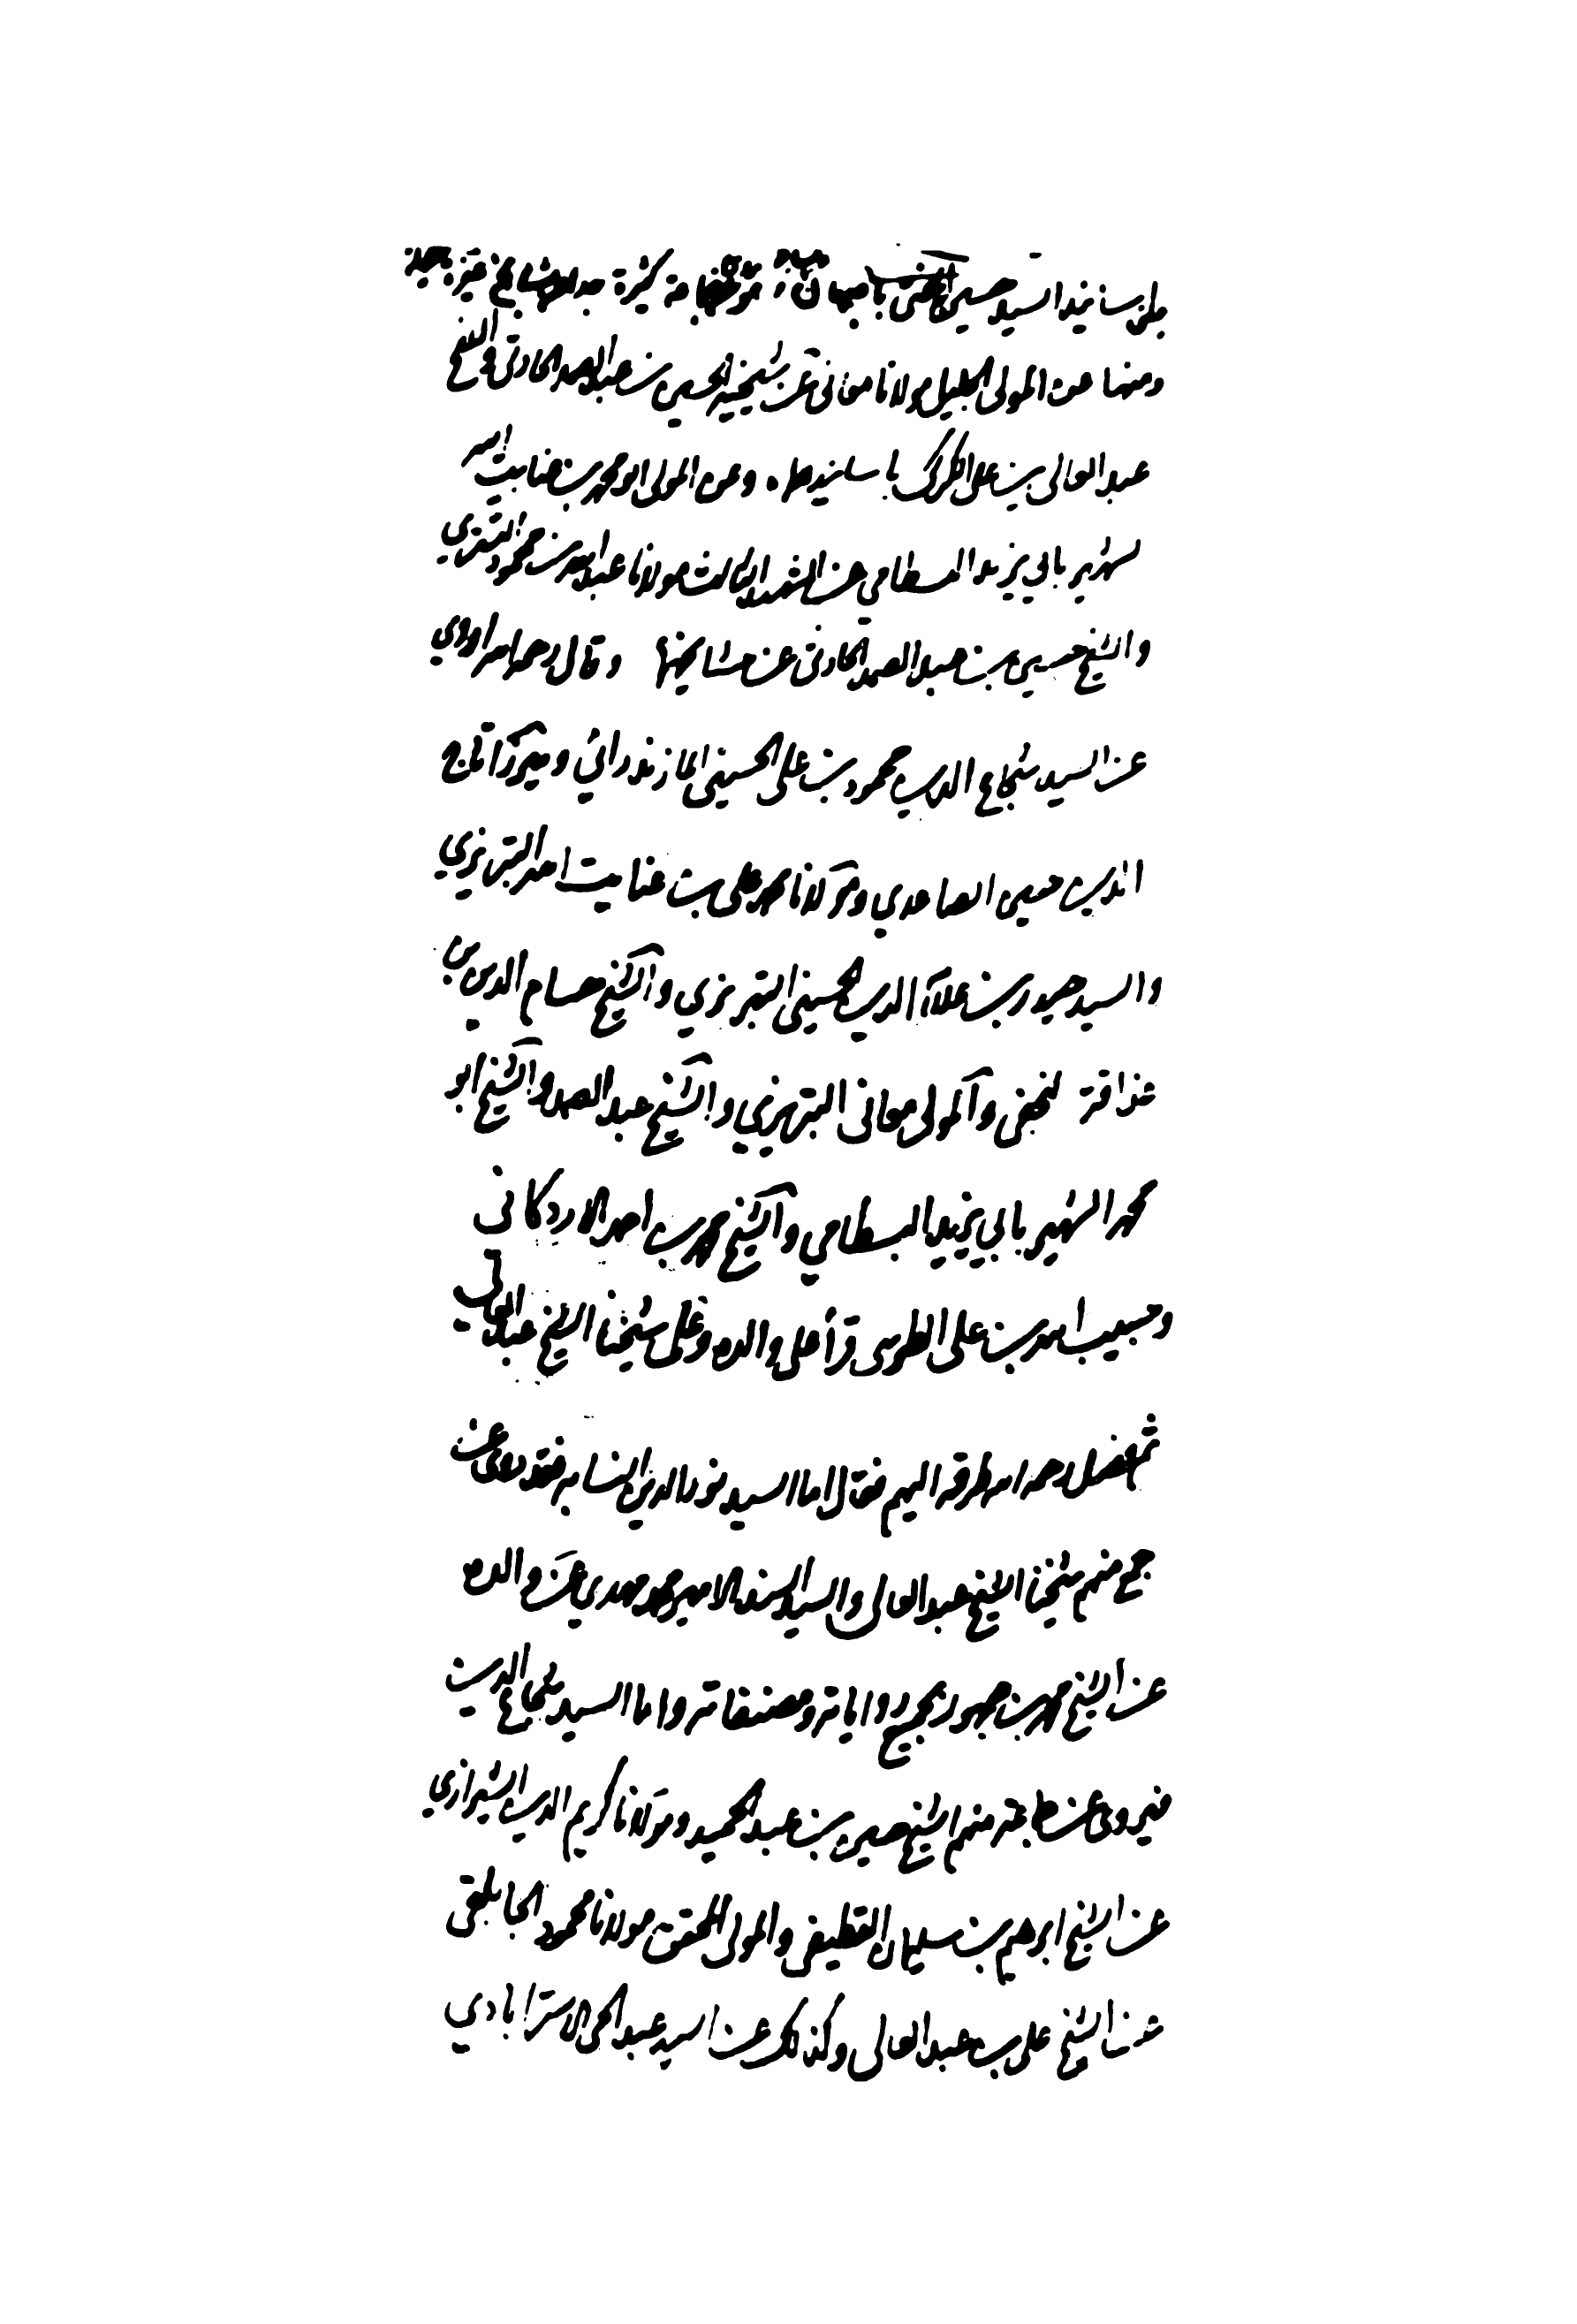 السيد حسين كثيرة
ومنها عن المولى الجليل مولانا معانى عن شيخيه الحسين بن عبد الصمد الحارثى والشيخ
عبد العالى بن على الكركى باسانيدهما . وعن المولى ابو محمد بن عنايت الله
الشهير بابى يزيد البسطامي عن مولانا عبد الله بن محمود التسترى
والشيخ حسين بن عبد الصمد الحارثى عن مشايخهما وقال رحمه الله اروي
عن السيد شجاع الدين محمود بن على الحسينى المازندراني وميرزا تاج
الدين حسين الصاعدي ومولانا محمد على بن عنايت الله التبريزي
والسيد حيدر بن علاء الدين الحسينى التبريزي والشيخ حسام الدين بن
عذاقة النجفى والمولى معانى التبريزي والشيخ عبد الصمد والشيخ ابو
محمد الشهير بابي يزيد البسطامي والشيخ محمد بن احمد الاردكانى
وحبيب الله بن على الطوسى قرأ على والده وعلى شيخنا الشيخ عبد العالي
ثم فصل رحمه الله طرقه اليهم فقال اما السيد نور الدين النسابه فقد روى عن
جمع منهم شيخنا الشيخ عبد العالى والسيد السند الامير محمد مهدي عن والده
عن الشيخ محمد بن جمهور بجميع رواياته ومصنفاته واما السيد شجاع الدين
فيروى عن طائفة منهم الشيخ حسين بن عبد الحميد ومولانا كريم الدين الشيرازي
عن الشيخ ابرهيم بن سليمان القطيفى والمولى المحقق مولانا محمود الجابلقى
عن الشيخ على بن عبد العالى وكذلك عن السيد عبد الحى الاسترابادي